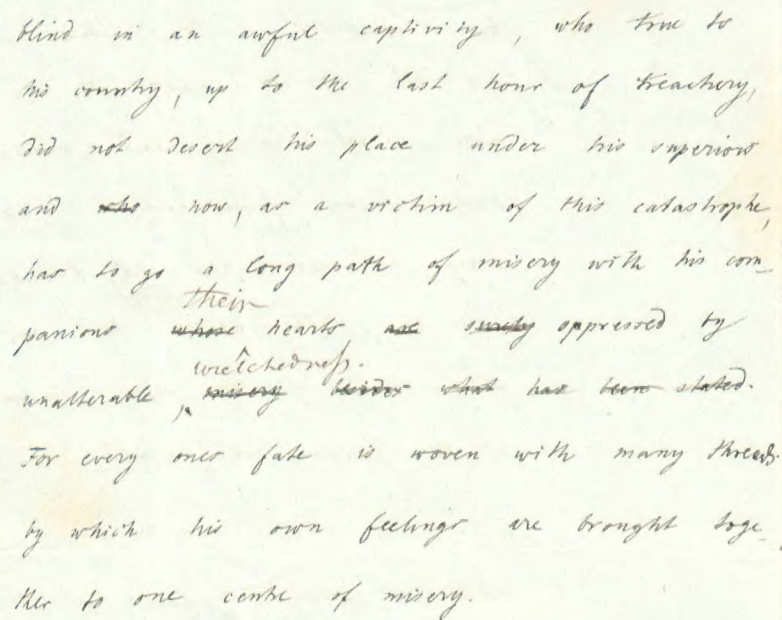 blind in an awful captivity, who true to
his country, up to the last hour of treachery,
did not desert his place under his superiors
and who now, as a victim of this catastrophe,
has to go a long path of misery with his com-
their
panions whose hearts are surely oppressed by
wretchedness.
unalterable, misery besides what has been stated.
For every ones fate is woven with many threads.
by which his own feelings are brought toge-
ther to one centre of misery.